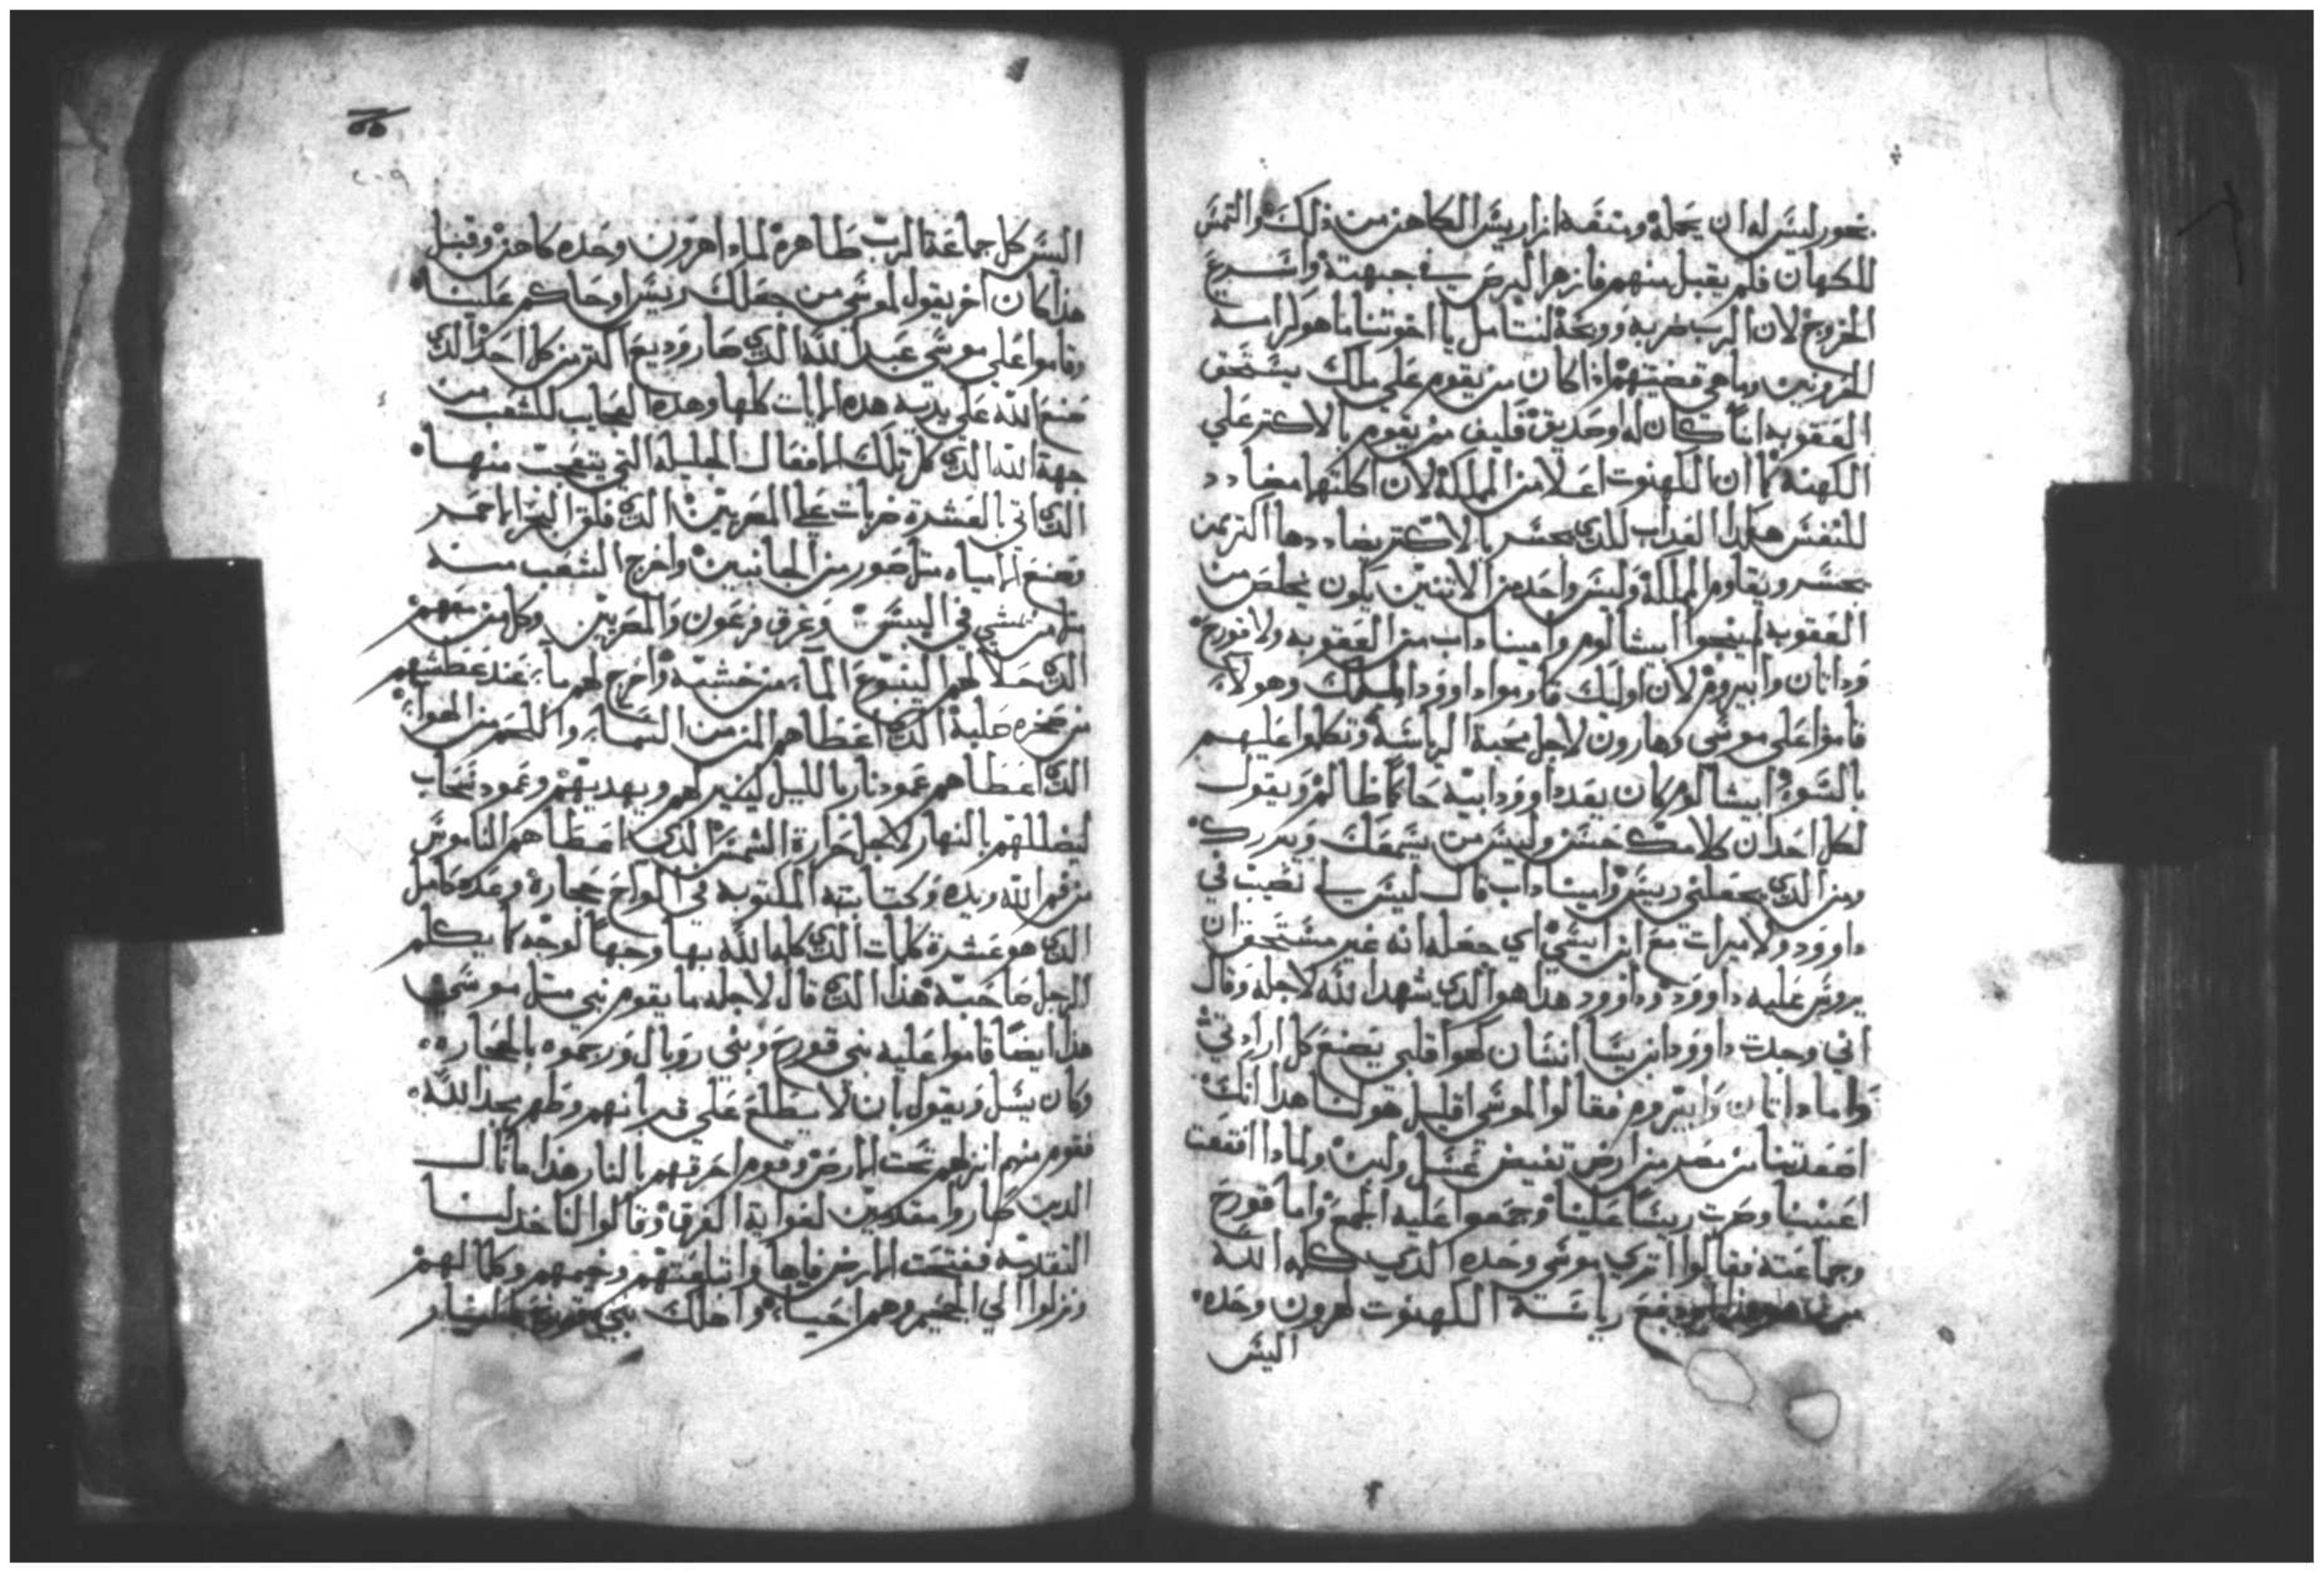 بخور ليس له ان يحمله ومنفه ازاريس الكاهن من ذلك والتمس
للكهان فلم يقبل منهم فازهر البرص في جبهته واسرع
الخروج لان الرب ضربه ووبخه لنتامل يا اخوتنا ما هو كرامة
وما هي قضيتهم اذا كان من يقوم علي ملك يستحق
العقوبه انسان كان له وحديق فكيف من يقوم بالاكتر علي
الكهنه كما ان الكهنوت اعلا من المملكة لان اكلتها مضادد
للنفس هكذا العداب للدي يجسر بالاكتر يضاددها اكتر من
يجسر ويقاوم المملكة وليس واحد من الاتنين يكون يخلص من
العقوبه لم ينجوا ابيشالوم وامينا داب من العقوبه ولا قورح
وداتان وابيروم لان اوليك قاوموا داوود الملك وهولاء
قاموا علي موسي وهارون لاجل محبة الرياسة وتكلموا عليهم
بالسو ابيشالوم كان يعد داوود ابيه حاكما ظالم ويقول
لكل احد ان كلامك حسن وليس من يسمعك ويدركك
ومن الدي يجعلني ريس وامينا داب قال ليس لي نصيب في
داوود ولا ميرات مع ابن ايسي اي جعله انه غير مستحق ان
يروس عليه داوود وداوود هدا هو الدي شهد الله لاجله وقال
اني وجدت داوود ابن يسا انسان كهوا قلبي يصنع كل ارادتي
واما داتان وابيروم فقالوا لموسي اقليل هو لنا هدا انك
اصعدتنا من مصر من ارض تفيض عسل ولبن ولمادا اقتعت
اعيننا وصرت ريسا علينا وجمعوا عليه الجمع واما قورح
وجماعته فقالوا اتري موسي وحده الدي كلمه الله
رياسة الكهنوت لهرون وحده
اليس
اليس كل جماعة الرب طاهره لمادا هرون وحده كاهن وقبل
هدا كان اخر يقول لموسي من جعلك ريس او حاكم علينا
وقاموا علي موسي عبد الله الدي صار وديع اكتر من كل احد الدي
صنع الله علي يديه هده الايات كلها وهده العجايب للشعب من
جهة الله الدي كل تلك الافعال الجليله التي يتعجب منها
الدي اتي بالعشرة ضربات علي المصريين الدي فلق البحر الاحمر
وصنع المياه متل صور من الجانبين واخرج الشعب منه
متل من يمشي في اليبس وغرق فرعون والمصريين وكل من معهم
الدي حلا لهم الينبوع الماء من خشبه واخرج لهم ماء عند عطشهم
من صخره صلبة الدي اعطاهم المن من السماء واللحم من الهواء
الدي اعطاهم عمود نار بالليل لينير لهم ويهديهم وعمود سحاب
ليضللهم بالنهار لاجل حرارة الشمس الدي اعطاهم الناموس
من فم الله ويده وكتابته المكتوبه في الواح حجاره وعدد كامل
الدي هو عشرة كلمات الدي كلمه الله بها وجها لوجه كما يكلم
الرجل صاحبه هدا الدي قال لاجله ما يقوم نبي متل موسي
هدا ايضا قاموا عليه بني قورح وبني روبال ورجموه بالحجاره
وكان يسل ويقول بان لا يطلع علي قربانهم وظهر مجد الله
فقوم منهم انزلهم تحت الارض وقوم احرقهم بالنار هدا ما نال
الدين صاروا مقدمين لغواية الفرقه وقالوا لناخد لنا
التقدمه ففتحت الارض فاها وابتلعتهم وخيمهم وكلما لهم
ونزلوا الي الجحيم وهم احياء واهلك بني قورح